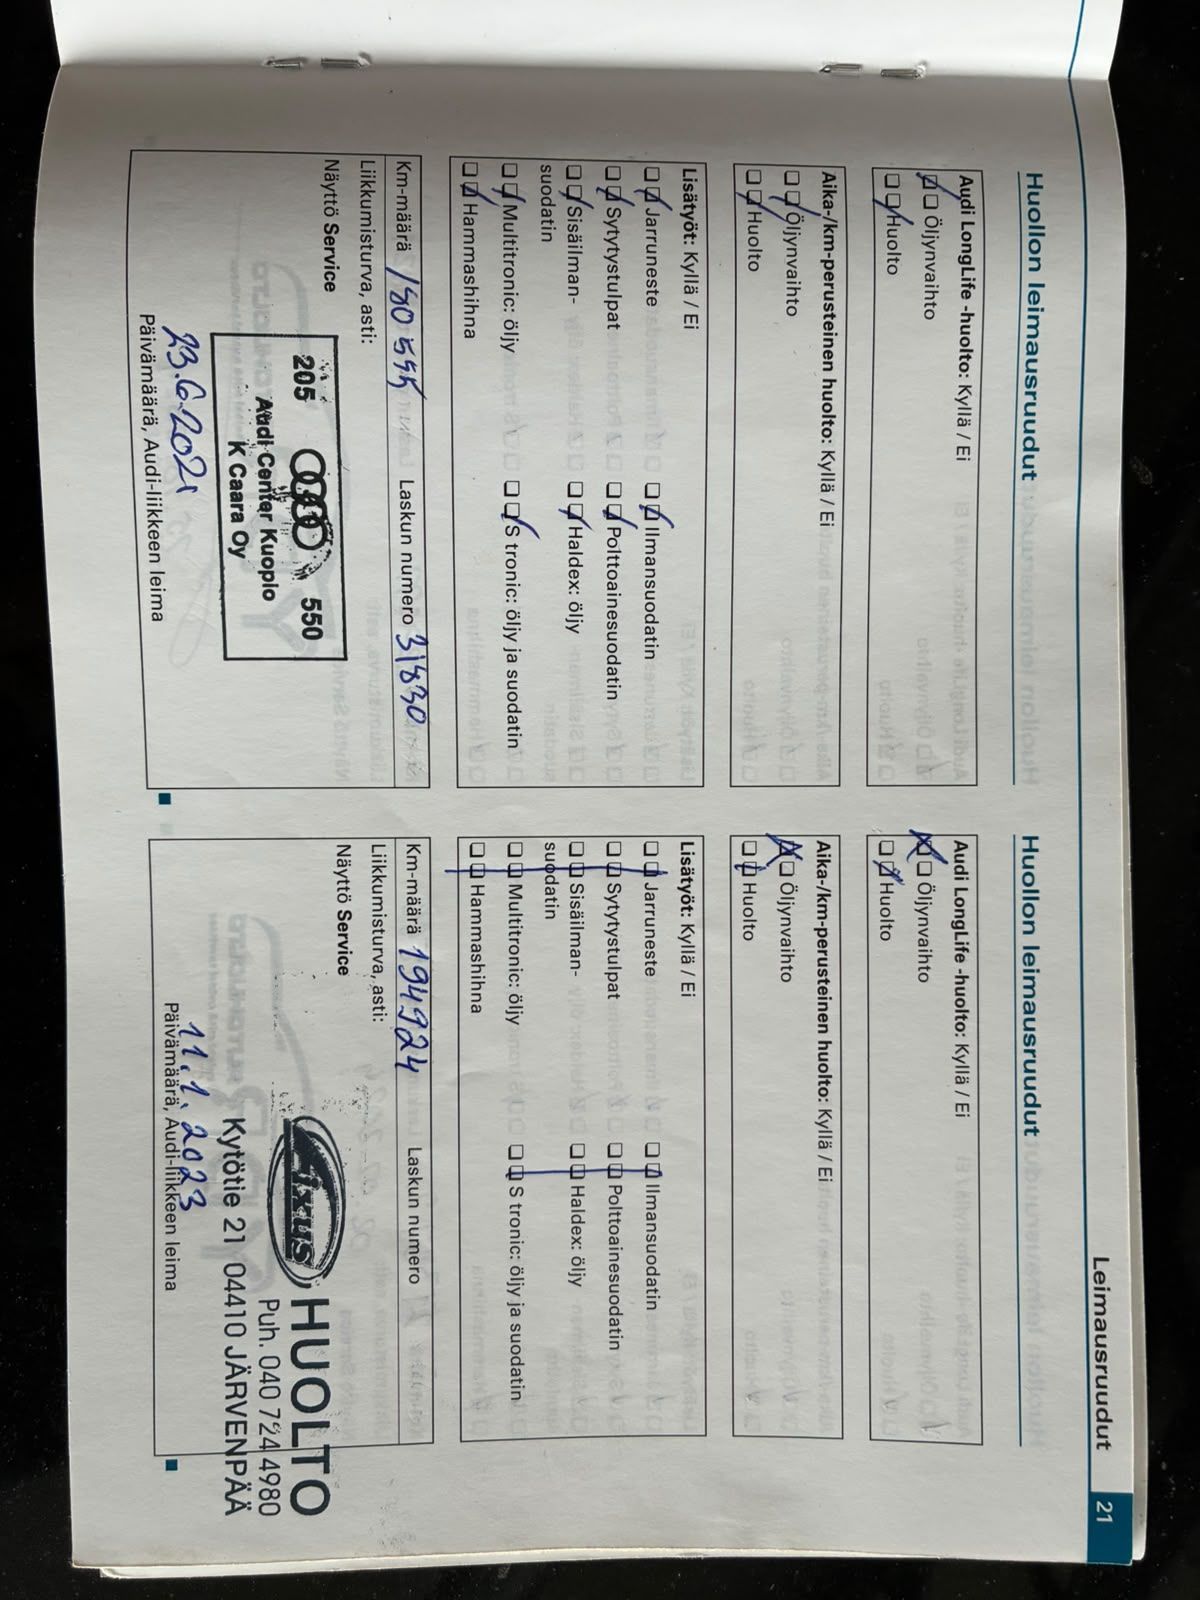 Leimausruudut
21
Huollon leimausruudut
Audi LongLife -huolto: Kyllä / Ei
Öljynvaihto
Huolto
Aika-/km-perusteinen huolto: Kyllä / Ei
Öljynvaihto
Huolto
Lisätyöt: Kyllä / Ei
Jarruneste Ilmansuodatin
Sytytystulpat Polttoainesuodatin
Sisäilman- Haldex: öljy
suodatin
Multitronic: öljy S tronic: öljy ja suodatin
Hammashihna
Km-määrä 180 555 Laskun numero 31830
Liikkumisturva, asti:
Näyttö Service
205 550
Audi Center Kuopio
K Caara Oy
23.6.2021
Päivämäärä, Audi-liikkeen leima
Huollon leimausruudut
Audi LongLife -huolto: Kyllä / Ei
Öljynvaihto
Huolto
Aika-/km-perusteinen huolto: Kyllä / Ei
Öljynvaihto
Huolto
Lisätyöt: Kyllä / Ei
Jarruneste Ilmansuodatin
Sytytystulpat Polttoainesuodatin
Sisäilman- Haldex: öljy
suodatin
Multitronic: öljy S tronic: öljy ja suodatin
Hammashihna
Km-määrä 194924 Laskun numero
Liikkumisturva, asti:
Näyttö Service
Fixus HUOLTO
Puh. 040 724 4980
Kytötie 21 04410 JÄRVENPÄÄ
11.1.2023
Päivämäärä, Audi-liikkeen leima